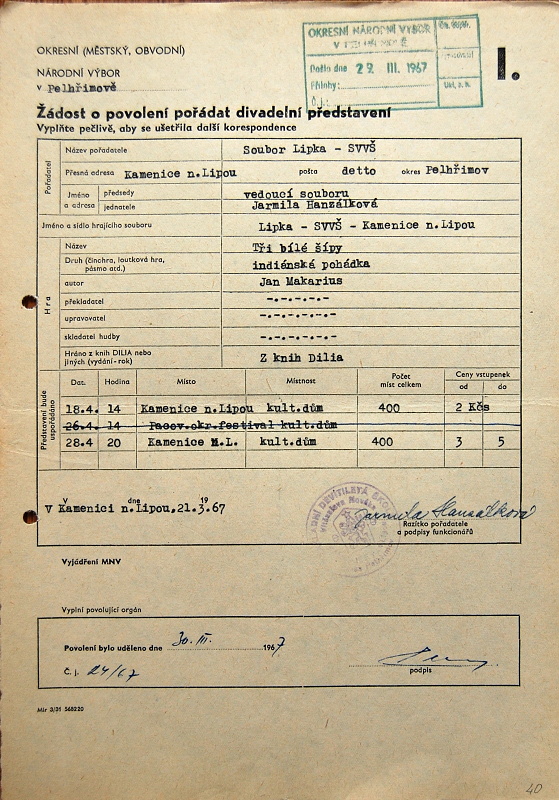 OKRESNÍ (MĚSTSKÝ, OBVODNÍ)
NÁRODNÍ VÝBOR
v Pelhřimově
OKRESNÍ NÁRODNÍ VÝBOR
V PELHŘIMOVĚ
Došlo dne 29. III. 1967
Přílohy:
Č. j.
I.
Žádost o povolení pořádat divadelní představení
Vyplňte pečlivě, aby se ušetřila další korespondence
Pořadatel
Název pořadatele Soubor Lipka - SVVŠ
Přesná adresa Kamenice n.Lipou pošta detto okres Pelhřimov
Jméno a adresa předsedy vedoucí souboru
jednatele Jarmila Hanzálková
Jméno a sídlo hrajícího souboru Lipka - SVVŠ - Kamenice n.Lipou
Hra
Název Tři bílé šípy
Druh (činohra, loutková hra, pásmo atd.) indiánská pohádka
autor Jan Makarius
překladatel -.-.-.-.-
upravovatel -.-.-.-.-
skladatel hudby -.-.-.-.-
Hráno z knih DILIA nebo jiných (vydání - rok) Z knih Dilia
Představení bude uspořádáno
Dat. Hodina Místo Místnost Počet míst celkem Ceny vstupenek
od do
18.4. 14 Kamenice n.Lipou kult.dům 400 2 Kčs
26.4. 14 Pacov.okr.festival kult.dům
28.4 20 Kamenice n.L. kult.dům 400 3 5
V Kamenici n.Lipou, dne 21.3.1967
Jarmila Hanzálková
Razítko pořadatele
a podpisy funkcionářů
Vyjádření MNV
Vyplní povolující orgán
Povolení bylo uděleno dne 30. III. 1967
Č. j. 24/67
podpis
Mír 3/31 568220
40